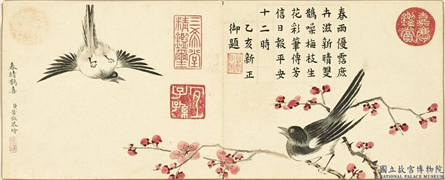 春雨優霑庶
卉滋新晴雙
鵲噪梅枝生
花彩筆傳芳
信日報平安
十二時
乙亥新正
御題
春晴鵲喜
國立故宮博物院
NATIONAL PALACE MUSEUM